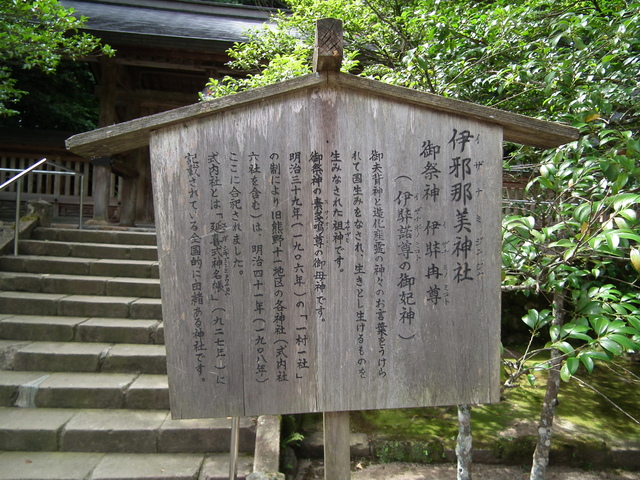 伊邪那美神社
イザナミジンジャ
御祭神 伊弉冉尊
(伊弉諾尊の御妃神)
御夫背神と造化三霊の神々のお言葉をうけら
れて国生みをなされ、生きとし生けるものを
生みなされた祖神です。
御祭神の素戔嗚尊の御母神です。
明治三十九年(一九〇六年)の「一村一社」
の制により旧熊野十二地区の各神社(式内社
六社を含む)は、明治四十一年(一九〇八年)
ここに合祀されました。
式内社とは「延喜式神名帳」(九二七年)に
記載されている全国的に由緒ある神社です。